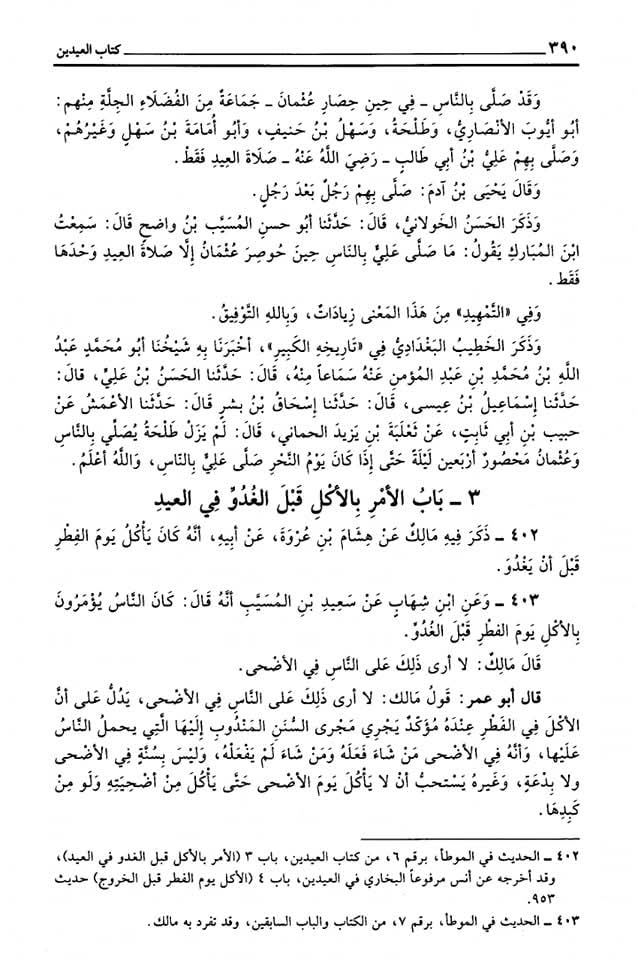 ٣٩٠ كتاب العيدين
وَقَدْ صَلَّى بِالنَّاسِ ـ فِي حِينِ حِصَارِ عُثْمَانَ ـ جَمَاعَةٌ مِنَ الفُضَلَاءِ الجِلَّةِ مِنْهم:
أبُو أيُّوبَ الأنْصَارِيُّ، وَطَلْحَةُ، وَسَهْلُ بْنُ حَنيفٍ، وَأبُو أُمَامَةَ بْنُ سَهْلٍ وَغَيْرُهُمْ،
وَصَلَّى بِهِمْ عَلِيُّ بْنُ أبي طَالبٍ ـ رَضِيَ اللَّهُ عَنْهُ ـ صَلَاةَ العِيدِ فَقَطْ.
وَقَالَ يَحْيَى بْنُ آدمَ: صَلَّى بِهِمْ رَجُلٌ بَعْدَ رَجُلٍ.
وَذَكَرَ الحَسَنُ الخَولانيُّ، قَالَ: حَدَّثَنا أبُو حسنٍ المُسَيَّبِ بْنُ واضحٍ قَالَ: سَمِعْتُ
ابْنَ المُبَاركِ يَقُولُ: مَا صَلَّى عَلِيٌّ بِالنَّاسِ حِينَ حُوصِرَ عُثْمَانُ إلَّا صَلاةَ العِيدِ وَحْدَهَا
فَقَط.
وَفِي «التَّمْهِيدِ» مِنَ هَذَا المَعْنى زِيادَاتٌ، وَبِاللهِ التَّوْفِيقُ.
وَذَكَرَ الخَطِيبُ البَغْدَادِيُّ فِي «تَارِيخِهِ الكَبِيرِ»، أخْبَرَنَا بِهِ شَيْخُنَا أبُو مُحَمَّدٍ عَبْدُ
اللَّهِ بْنُ مُحَمَّدِ بْنِ عَبْدِ المُؤمنِ عَنْهُ سَمَاعاً مِنْهُ، قَالَ: حَدَّثَنا الحَسَنُ بْنُ عَلِيٍّ، قالَ:
حَدَّثَنا إسْمَاعِيلُ بْنُ عِيسى، قَالَ: حَدَّثَنا إسْحَاقُ بْنُ بشرٍ قَالَ: حَدَّثَنا الأعْمَشُ عَنْ
حبيب بْنِ أبي ثَابِتٍ، عَنْ ثَعْلَبَةَ بْنِ يَزيدَ الحماني، قَالَ: لَمْ يَزَلْ طَلْحَةُ يُصَلِّي بِالنَّاسِ
وَعُثْمَانُ مَحْصُورٌ أرْبَعين لَيْلَةً حَتَّى إذَا كَانَ يَوْمُ النَّحْرِ صَلَّى عَلِيٌّ بِالنَّاسِ، وَاللَّهُ أعْلَمُ.
٣ ـ بَابُ الأمْرِ بِالأكْلِ قَبْلَ الغُدُوِّ فِي العيدِ
٤٠٢ ـ ذَكَرَ فِيهِ مَالِكٌ عَنْ هِشَامَ بْنِ عُرْوَةَ، عَنْ أبِيهِ، أنَّهُ كَانَ يَأْكُلُ يَومَ الفِطْرِ
قَبْلَ أنْ يَغْدُوَ.
٤٠٣ ـ وَعَنِ ابْنِ شِهَابٍ عَنْ سَعِيدِ بْنِ المُسَيَّبِ أنَّهُ قَالَ: كَانَ النَّاسُ يُؤْمَرُونَ
بِالأكْلِ يَومَ الفطْرِ قَبْلَ الغُدُوِّ.
قَالَ مَالِكٌ: لا أرى ذَلِكَ عَلى النَّاسِ فِي الأضْحى.
قال أبو عمر: قَولُ مَالك: لا أرى ذَلِكَ عَلى النَّاسِ فِي الأضْحى، يَدُلُّ عَلى أنَّ
الأكْلَ فِي الفَطْرِ عِنْدَهُ مُؤَكّدٌ يَجْرِي مَجْرى السُنَنِ المَنْدُوبِ إلَيْهَا الَّتِي يحملُ النَّاسُ
عَلَيْها، وَأنَّهُ فِي الأضْحى مَنْ شَاءَ فَعَلَهُ وَمَنْ شَاءَ لَمْ يَفْعَلْهُ، وَلَيْسَ بِسُنَّةٍ فِي الأضْحى
ولا بِدْعَةٍ، وَغَيرهُ يَسْتحبُّ أنْ لا يَأْكُلَ يَومَ الأضْحى حَتَّى يَأْكُلَ مِنْ أضْحِيَتِهِ وَلَو مِنْ
كَبِدِهَا.
٤٠٢ ـ الحديث في الموطأ، برقم ٦، من كتاب العيدين، باب ٣ (الأمر بالأكل قبل الغدو في العيد)،
وقد أخرجه عن أنس مرفوعاً البخاري في العيدين، باب ٤ (الأكل يوم الفطر قبل الخروج) حديث
٩٥٣.
٤٠٣ ـ الحديث في الموطأ، برقم ٧، من الكتاب والباب السابقين، وقد تفرد به مالك.